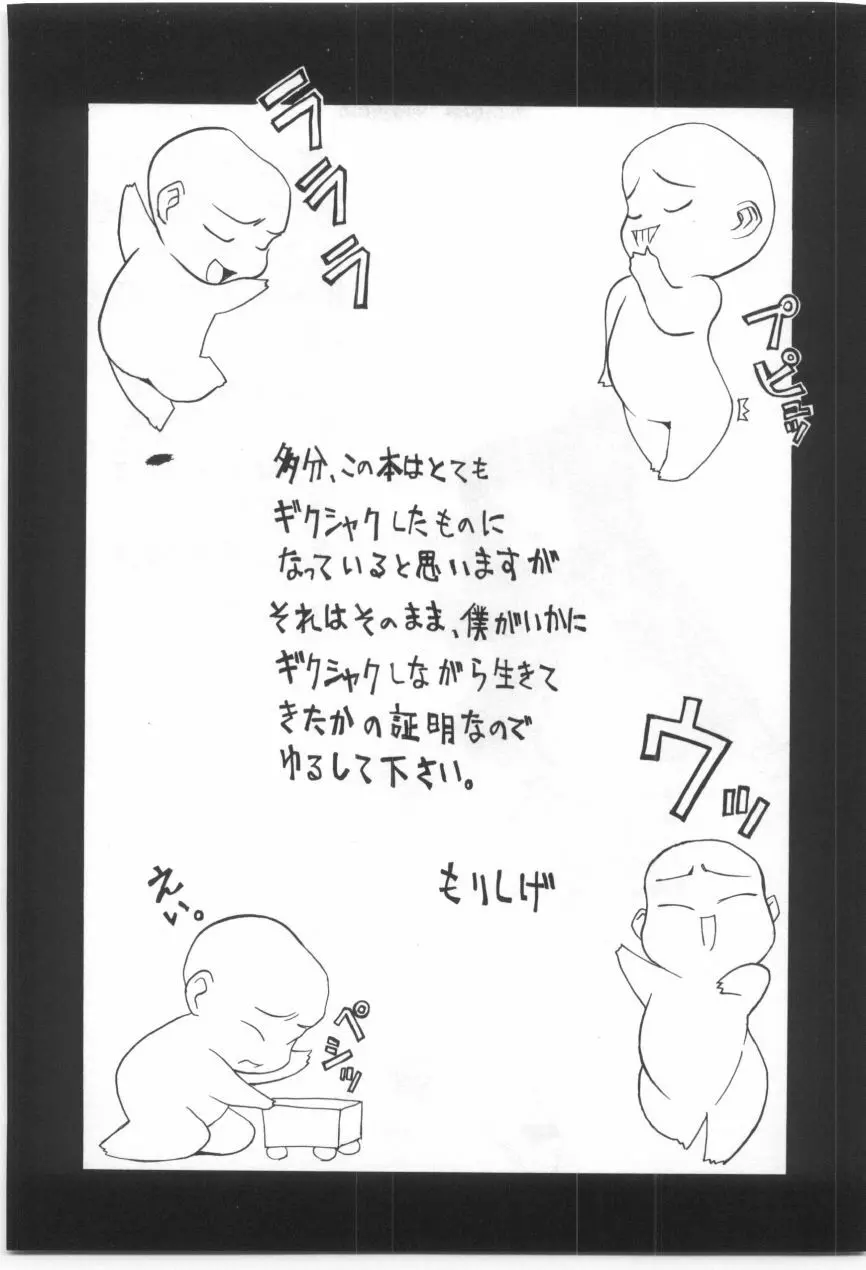 ララララララ
ペンペンッ
多分、この本はとても
ギクシャクしたものに
なっていると思いますが
それはそのまま、僕がいかに
ギクシャクしながら生きて
きたかの証明なので
ゆるして下さい。
もりしげ
ウッッ
えい。
ペシッ